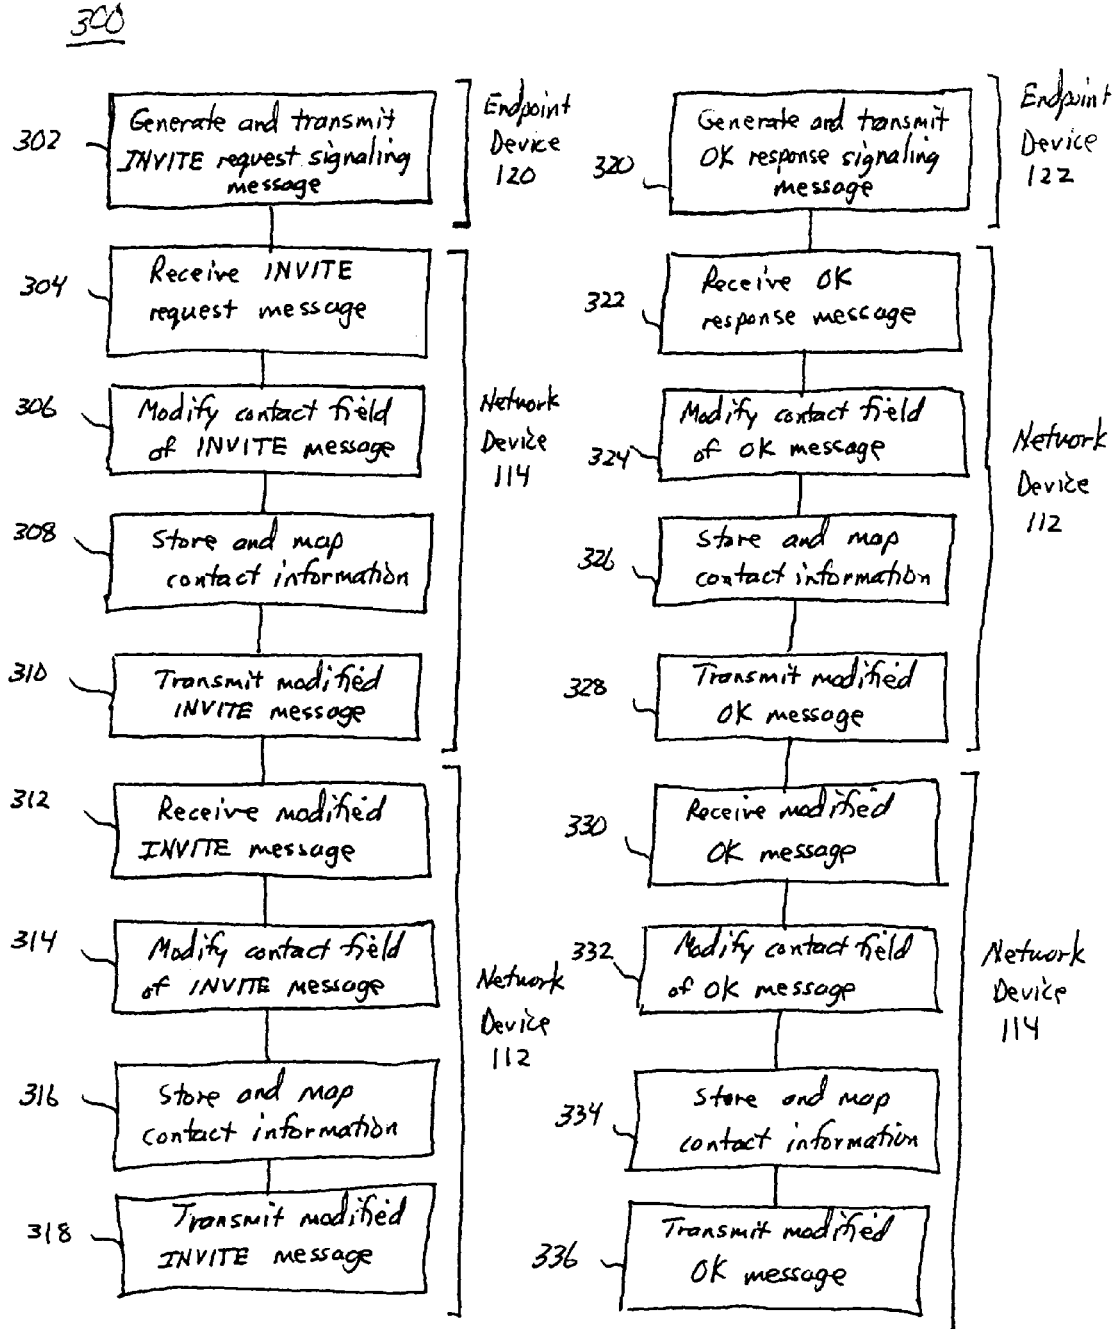 300
302
Generate and transmit
INVITE request signaling
message
Endpoint
Device
120
304
Receive INVITE
request message
306
Modify contact field
of INVITE message
308
Store and map
contact information
310
Transmit modified
INVITE message
Network
Device
114
312
Receive modified
INVITE message
314
Modify contact field
of INVITE message
316
Store and map
contact information
318
Transmit modified
INVITE message
Network
Device
112
320
Generate and transmit
OK response signaling
message
Endpoint
Device
122
322
Receive OK
response message
324
Modify contact field
of OK message
326
Store and map
contact information
328
Transmit modified
OK message
Network
Device
112
330
Receive modified
OK message
332
Modify contact field
of OK message
334
Store and map
contact information
336
Transmit modified
OK message
Network
Device
114